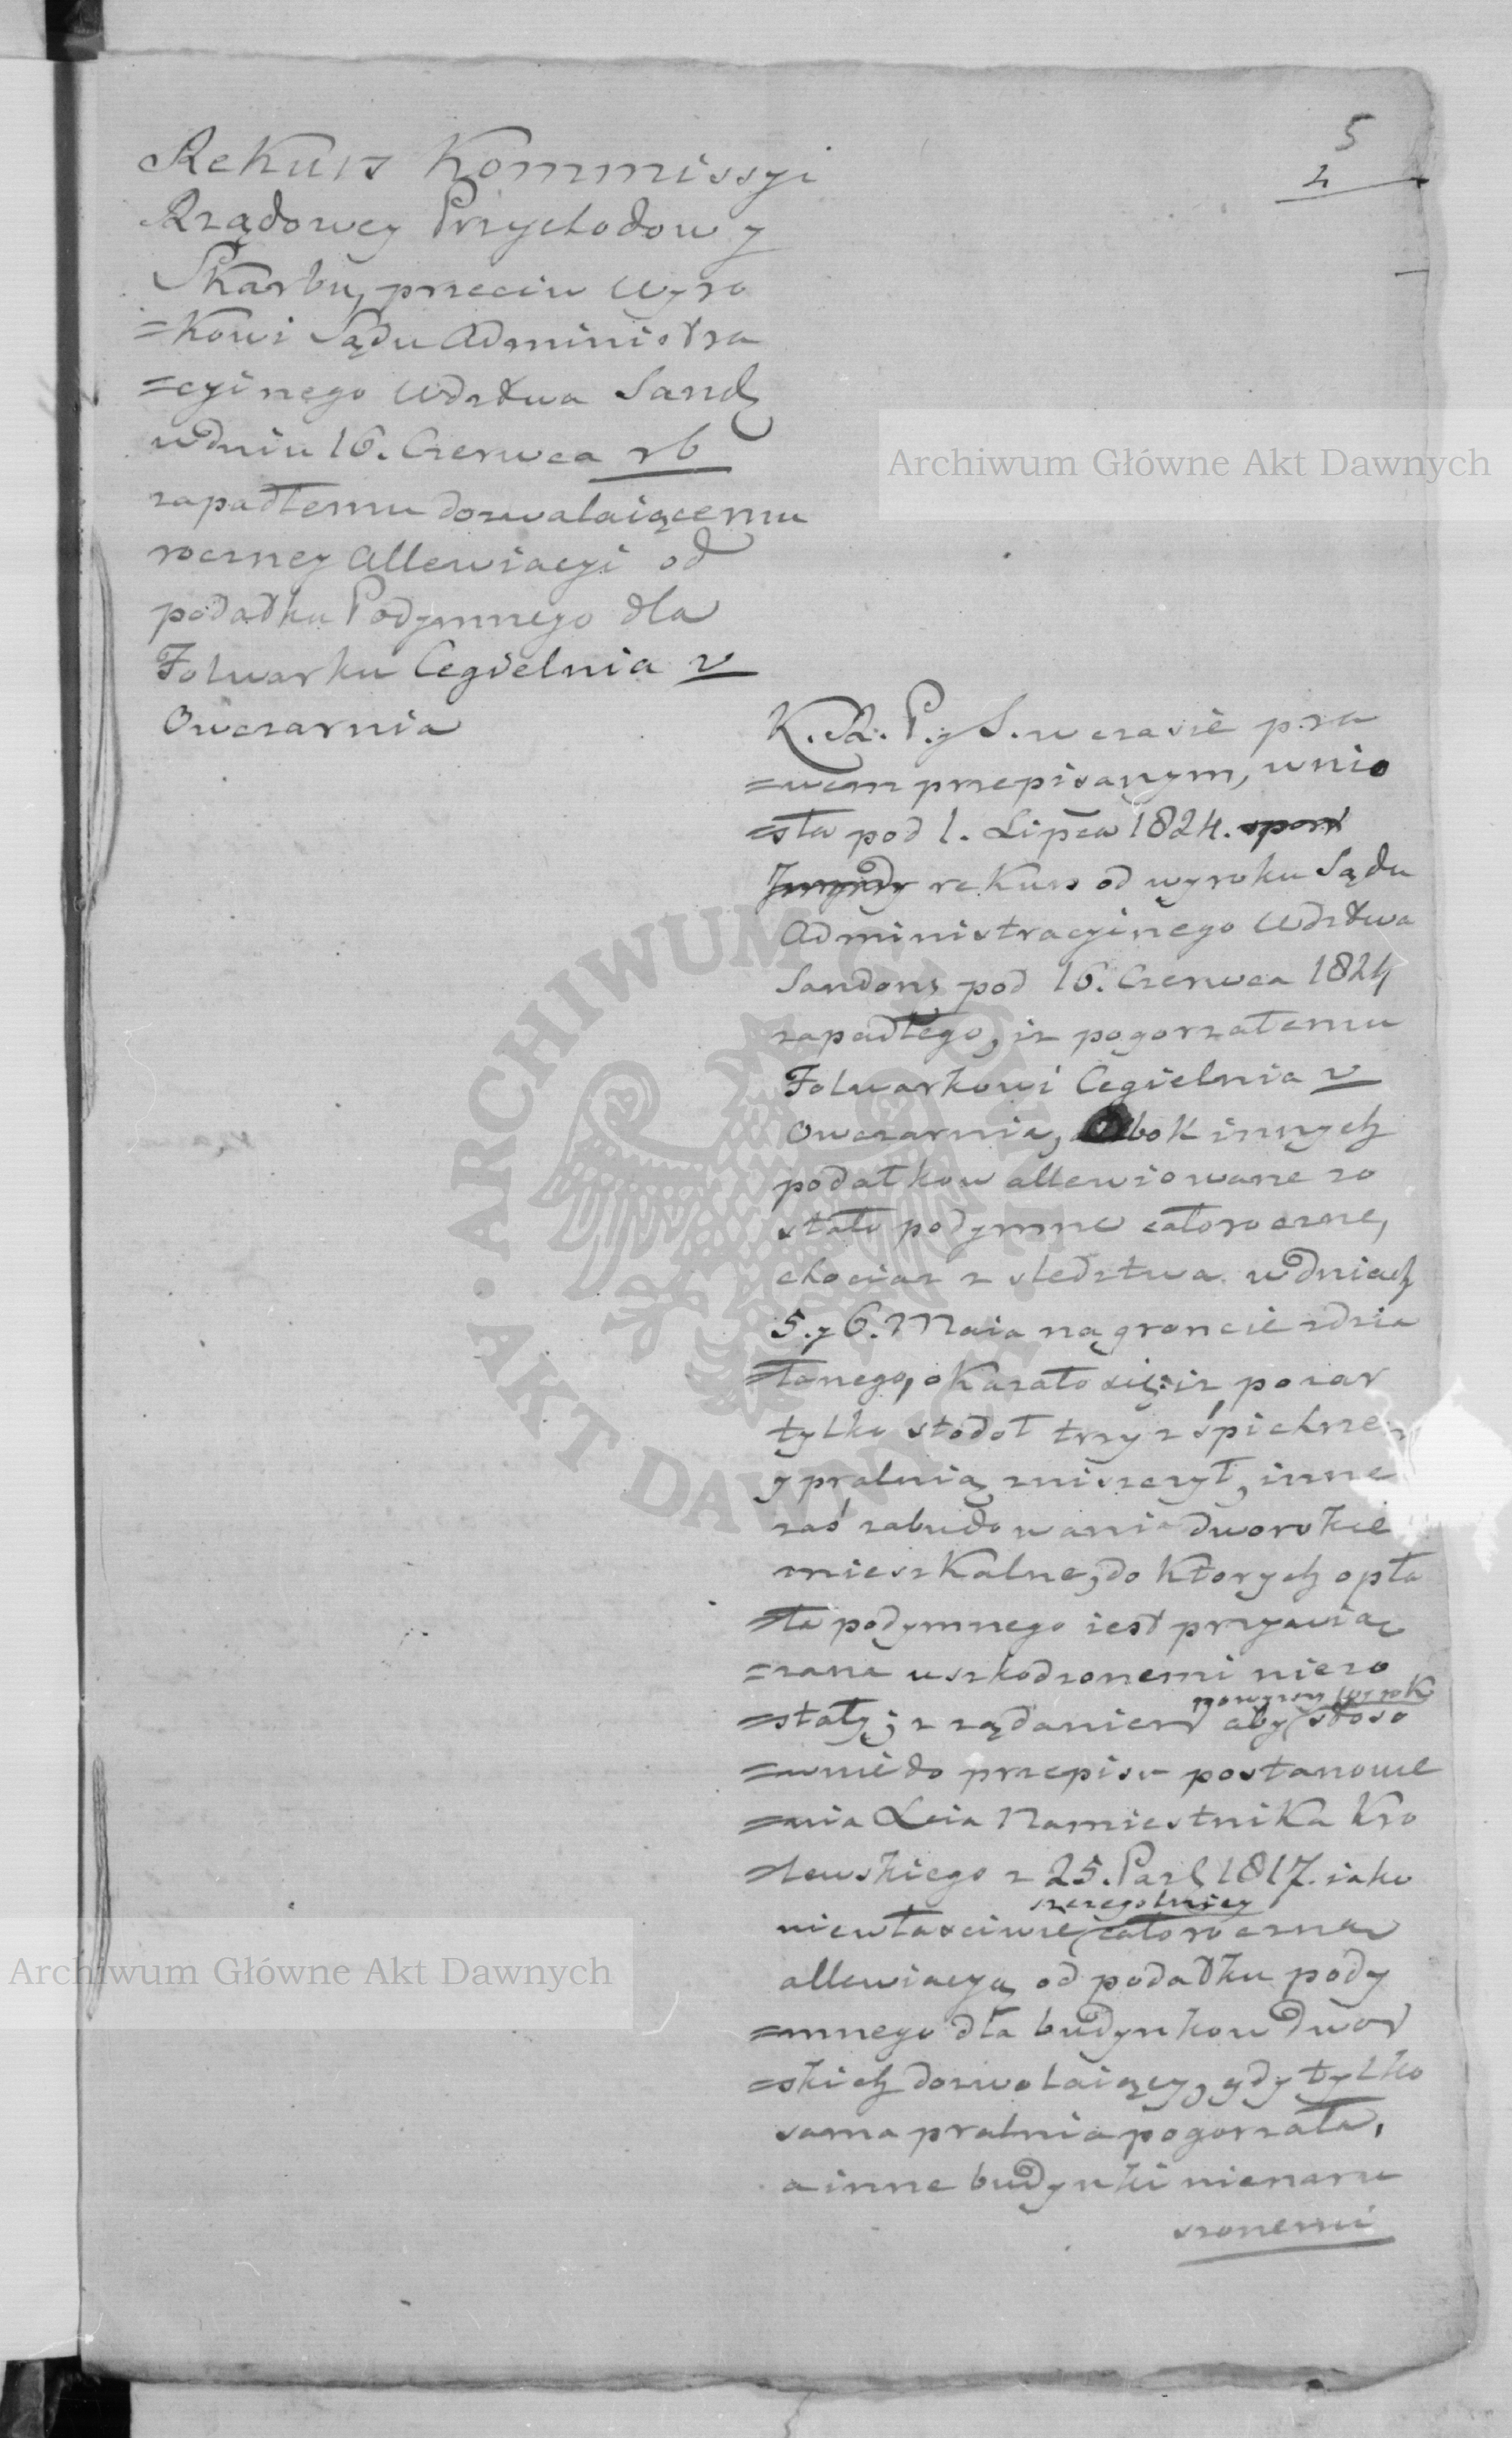 5
4
Rekurs Kommissyi
Rządowey Przychodow y
Skarbu, przeciw Wyro
=kowi Sądu Administra
=cyinego Wdztwa Sand
w dniu 16. Czerwca rb
zapadłemu dozwalaiącemu
roczney Allewiacyi od
podatku Podymnego dla
Folwarku Cegielnia v
Owczarnia
K. R. P. y S. w czasie pra
=wem przepisanym, wnio
=sła pod 1. Lipca 1824.
rekurs od wyroku Sądu
Administracyinego Wdztwa
Sandom pod 16. Czerwca 1824
zapadłego, iz pogorzałemu
Folwarkowi Cegielnia v
Owczarnia, obok innych
podatkow allewiowane zo
stało podymne całoroczne,
chociaz z sledztwa w dniach
5. y 6. Maia na gruncie zdzia
=łanego, okazało się: iz pozar
tylko stodoł trzy z śpichrzem
y pralnią zniszczył, inne
zaś zabudowania dworskie
mieszkalne, do ktorych opła
=ta podymnego iest przywią
=zana uszkodzonemi niezo
=stały; z ządaniem aby powyższy wyrok stoso
=wnie do przepisu postanowie
=nia Xcia Namiestnika Kro
=lewskiego z 25. Paz 1817. iako
niewłasciwie szczegolniey całoroczną
allewiacyą od podatku pody
=mnego dla budynkow dwor
=skich dozwalaiący, gdy tylko
sama pralnia pogorzała,
a inne budynki nienaru
szonemi
Archiwum Główne Akt Dawnych
Archiwum Główne Akt Dawnych
ARCHIWUM GŁÓWNE · AKT DAWNYCH ·